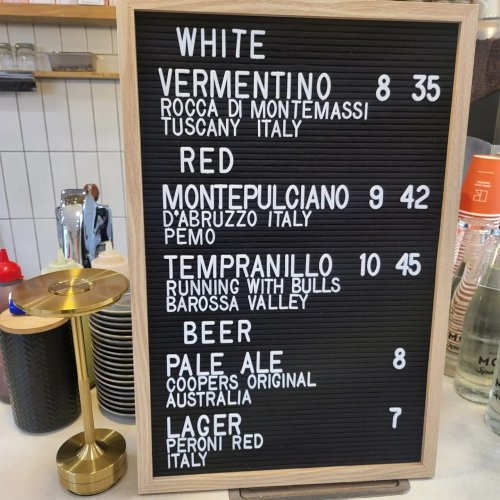 WHITE
VERMENTINO 8 35
ROCCA DI MONTEMASSI
TUSCANY ITALY
RED
MONTEPULCIANO 9 42
D'ABRUZZO ITALY
PEMO
TEMPRANILLO 10 45
RUNNING WITH BULLS
BAROSSA VALLEY
BEER
PALE ALE 8
COOPERS ORIGINAL
AUSTRALIA
LAGER 7
PERONI RED
ITALY